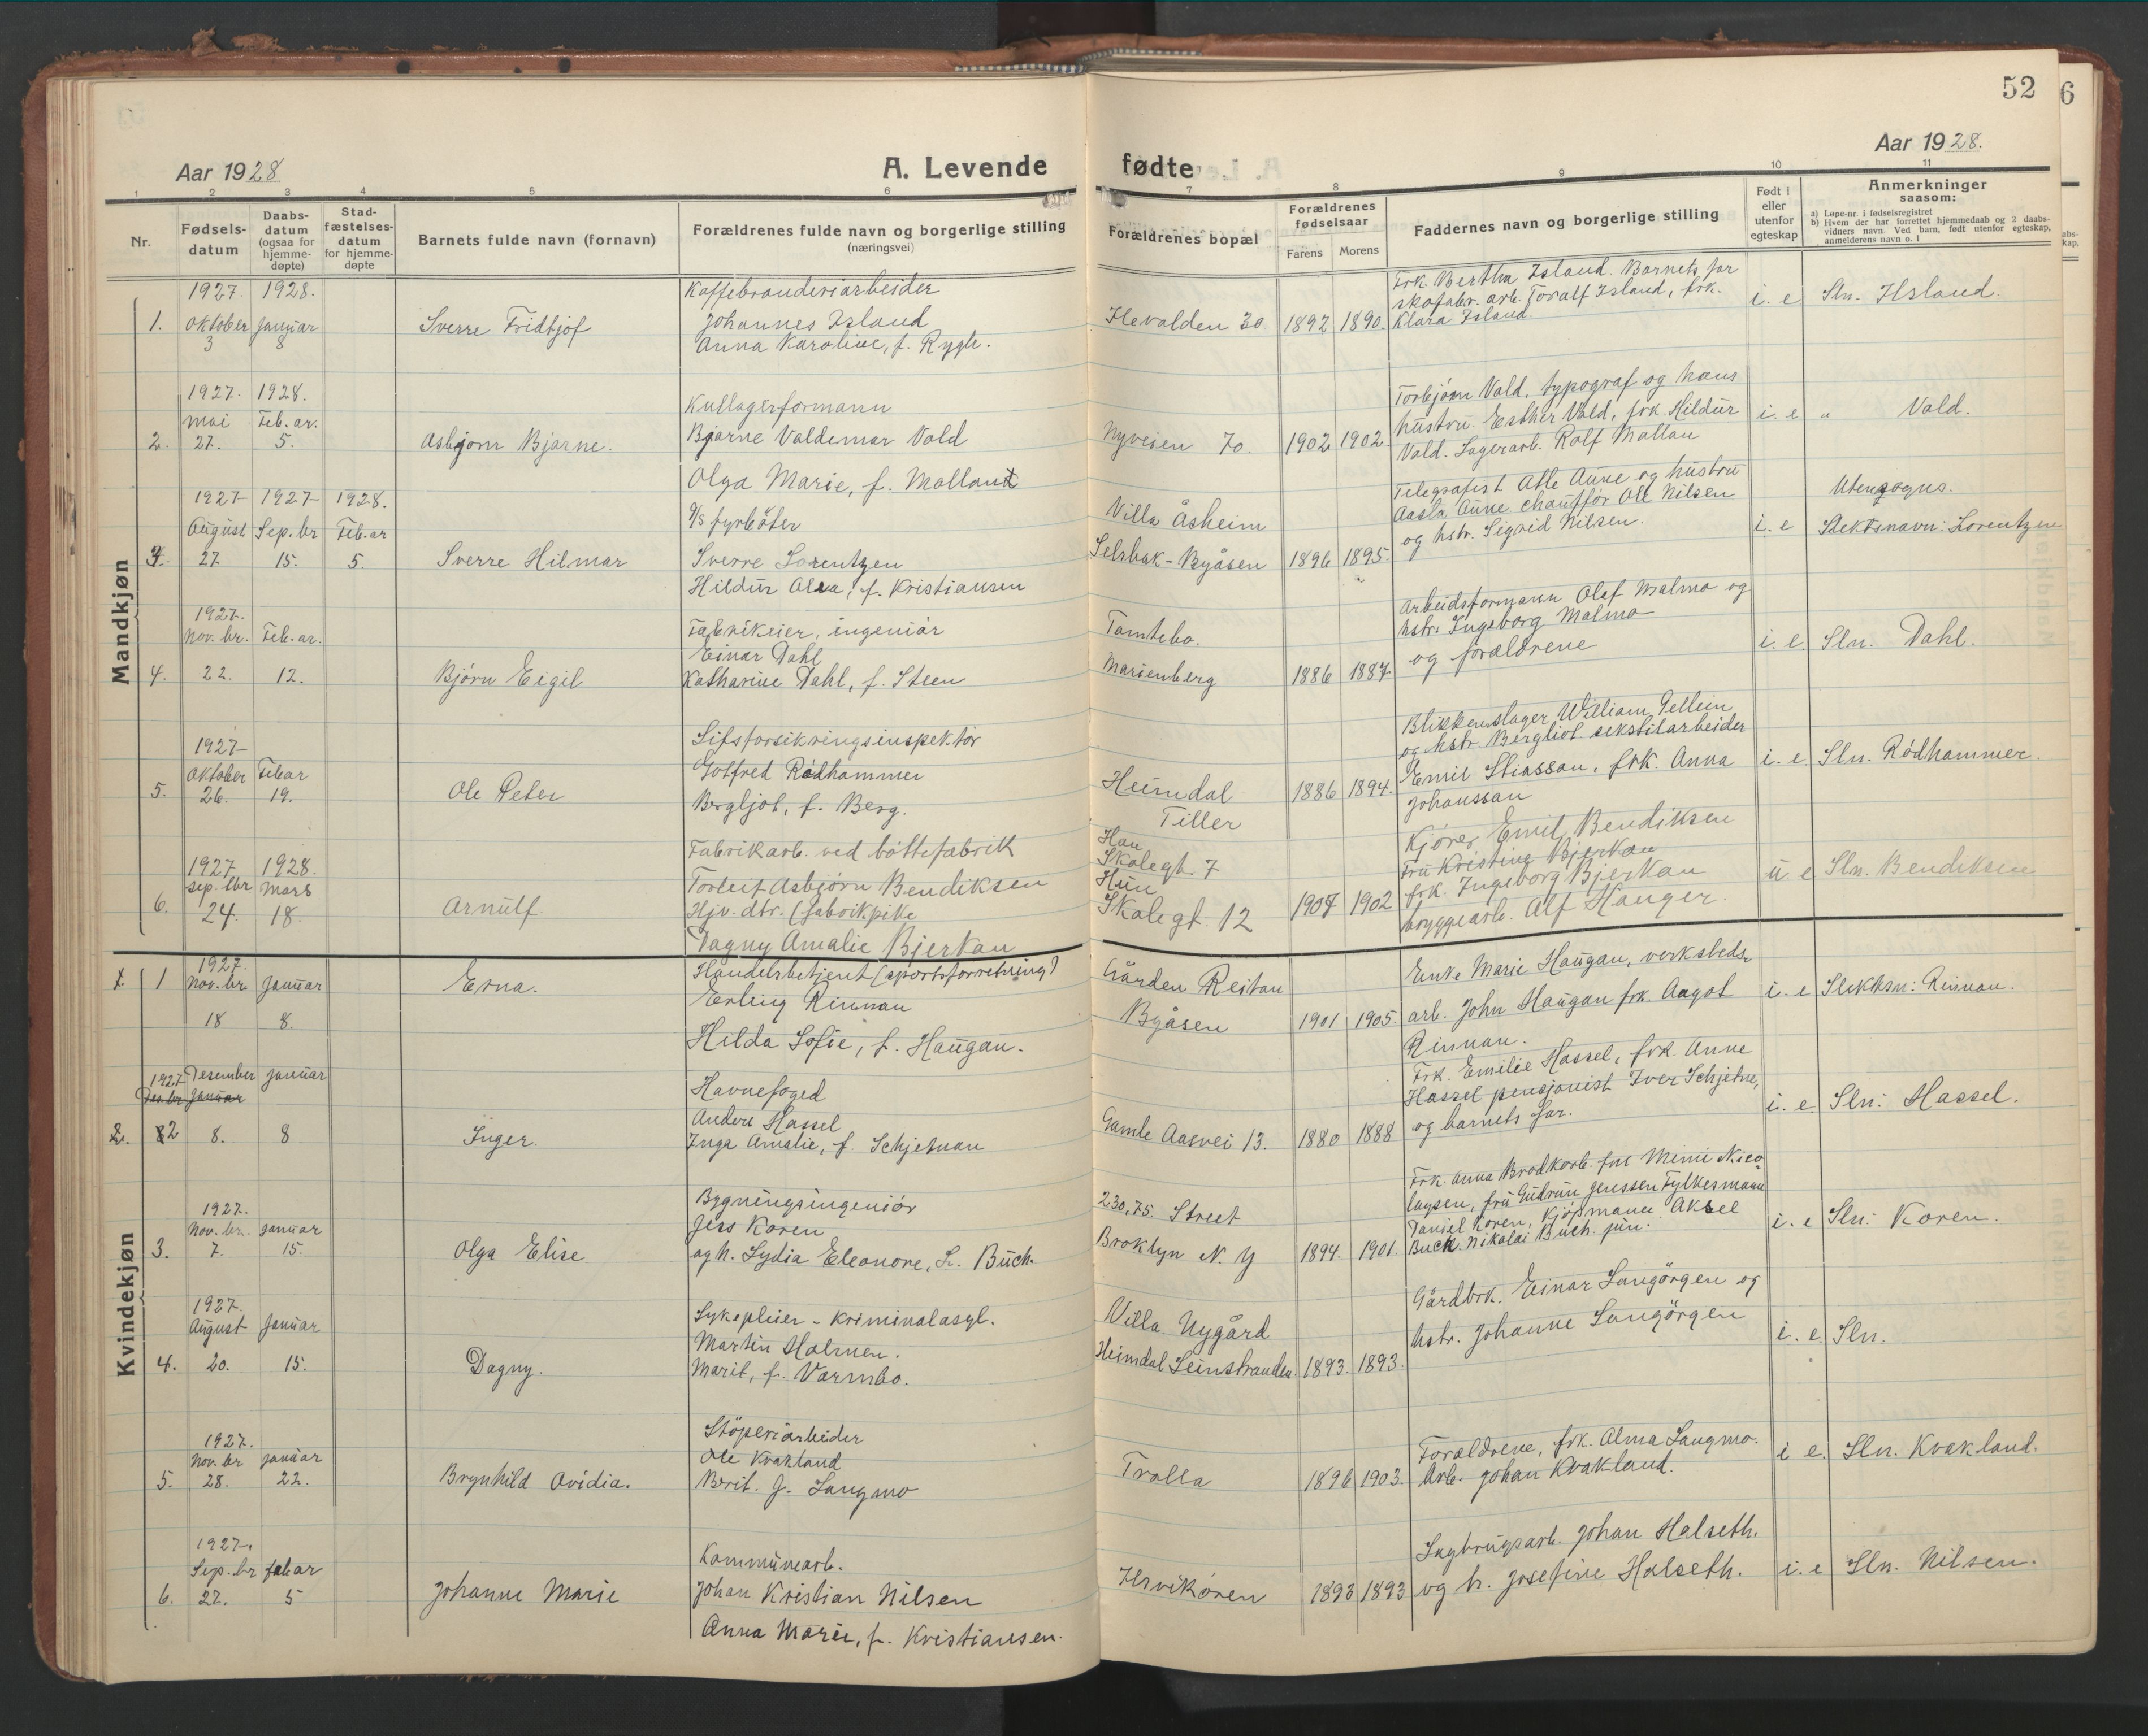 52
6
Aar 1928
A. Levende
fødte
Aar 1928.
1 2 3 4 5 6 7 8 9 10 11
Nr.
Fødsels-
datum
Daabs-
datum
(ogsaa for
hjemme-
døpte)
Stad-
fæstelses-
datum
for hjemme-
døpte
Barnets fulde navn (fornavn)
Forældrenes fulde navn og borgerlige stilling
(næringsvei)
Forældrenes bopæl
Forældrenes
fødselsaar
Farens Morens
Faddernes navn og borgerlige stilling
Født i
eller
utenfor
egteskap
Anmerkninger
saasom:
a) Løpe-nr. i fødselsregistret
b) Hvem der har forrettet hjemmedaab og 2 daabs-
vidners navn. Ved barn, født utenfor egteskap,
anmelderens navn o. l
Mandkjøn
1927. 1928.
1. Oktober Januar
3 8
Sverre Fridtjof
Kaffebrenderiarbeider
Johannes Island
Anna Karoline, f. Rygh.
Ilevolden 30 1892 1890.
Frk. Bertha Island. Barnets far
skofabr. arb. Toralf Island, frk.
Klara Island.
i. e Sln. Ilsland.
1927. 1928.
mai Feb. ar.
2. 27. 5.
Asbjørn Bjarne.
Kullagerformann
Bjarne Valdemar Vold
Olga Marie, f. Molland
Nyveien 70. 1902 1902
Torbjørn Vold, typograf og hans
hustru Esther Vold, frk. Hildur
Vold. Lagerarb. Rolf Mollan
i. e " Vold.
1927 1927 1928.
August Sep. br Feb. ar
3. 27. 15. 5.
Sverre Hilmar
D/s fyrbøter
Sverre Lorentzen
Hildur Alea, f. Kristiansen
Villa Åsheim
Selsbak - Byåsen 1896 1895.
Telegrafist Atle Aune og hustru
Aasta Aune chauffør Ole Nilsen
og hstr. Sigrid Nilsen.
i. e
Utensogns.
Slektsnavn: Lorentzen
1927.
Nov. br. Feb. ar.
4. 22. 12.
Bjørn Eigil
Fabrikeier, ingeniør
Einar Dahl
Katharine Dahl, f. Steen
Tomtebo.
Marienberg 1886 1887
Arbeidsformann Olaf Malmo og
hstr. Ingeborg Malmo
og forældrene
i. e. Sln. Dahl.
1927
Oktober Febar
5. 26. 19.
Ole Peter
Lifsforsikringsinspektør
Gotfred Rødhammer
Bergljot, f. Berg.
Heimdal
Tiller 1886 1894.
Blikkenslager William Gellein
og hstr. Bergliot. tekstilarbeider
Emil Stiassan, frk. Anna
Johanssan
i. e. Sln. Rødhammer.
1927 1928.
sep. tbr Mars
6. 24. 18.
Arnulf
Fabrikarb. ved bøttefabrikk
Torleif Asbjørn Bendiksen
Hjv. dtr. (fabrikpike
Dagny Amalie Bjerkan
Han
Skolegt. 7
Hun
Skolegt. 12 1904 1902
Kjører Emil Bendiksen
Fru Kristine Bjerkan
frk. Ingeborg Bjerkan
bryggearb. Alf Hanger.
u. e Sln. Bendiksen
Kvindekjøn
1927.
1 Nov. br Januar
18 8.
Erna.
Handelsbetjent (sportsforretning)
Erling Rinnan
Hilda Sofie, f. Haugan.
Gården Reitan
Byåsen 1901 1905.
Enke Marie Haugan, verksteds-
arb. John Haugan frk. Aagot
Rinnan.
i. e Slektsn: Rinnan.
1927 Desember Januar
Des. br Januar
2. 2 8. 8
Inger.
Havnefoged
Anders Hassel
Inga Amalie, f. Schjetnan
Gamle Aasvei 13. 1880 1888
Frk. Emilie Hassel, frk. Anne
Hassel pensjonist Iver Schjetne,
og barnets far.
i. e Sln: Hassel.
1927.
Nov. br. Januar
3. 7. 15.
Olga Elise
Bygningsingeniør
Jess Koren
og h. Lydia Eleonore, f. Buch.
230, 75. Street
Broklyn N. Y 1894. 1901.
Frk. Anna Brodkorb. frk Mimi Nico-
laysen, fru Gudrun Jenssen Fylkesmann
Daniel Koren, Kjøpmann Aksel
Buck. Nikolai Buch. jun.
i. e Sln: Koren.
1927.
August Januar
4. 20. 15.
Dagny.
Sykepleier - Kriminalasyl.
Martin Holmen.
Marit, f. Varmbo.
Villa Nygård
Heimdal Leinstranden 1893. 1893.
Gårdbrk. Einar Langørgen og
hstr. Johanne Langørgen
i. e. Sln.
1927.
Nov. br Januar
5. 28. 22.
Brynhild Ovidia.
Støperiarbeider
Ole Kvakland
Berit. f. Langmo
Trolla 1896 1903.
Forældrene, frk. Alma Langmo.
Arb. Johan Kvakland.
i e. Sln. Kvakland.
1927.
Sep. br febar
6. 27. 5
Johanne Marie
Kommunearb.
Johan Kristian Nilsen
Anna Marie, f. Kristiansen.
Ilsvikøren 1893 1893
Sagbrugsarb. Johan Halseth.
og h. Josefine Halseth.
i. e Sln. Nilsen.